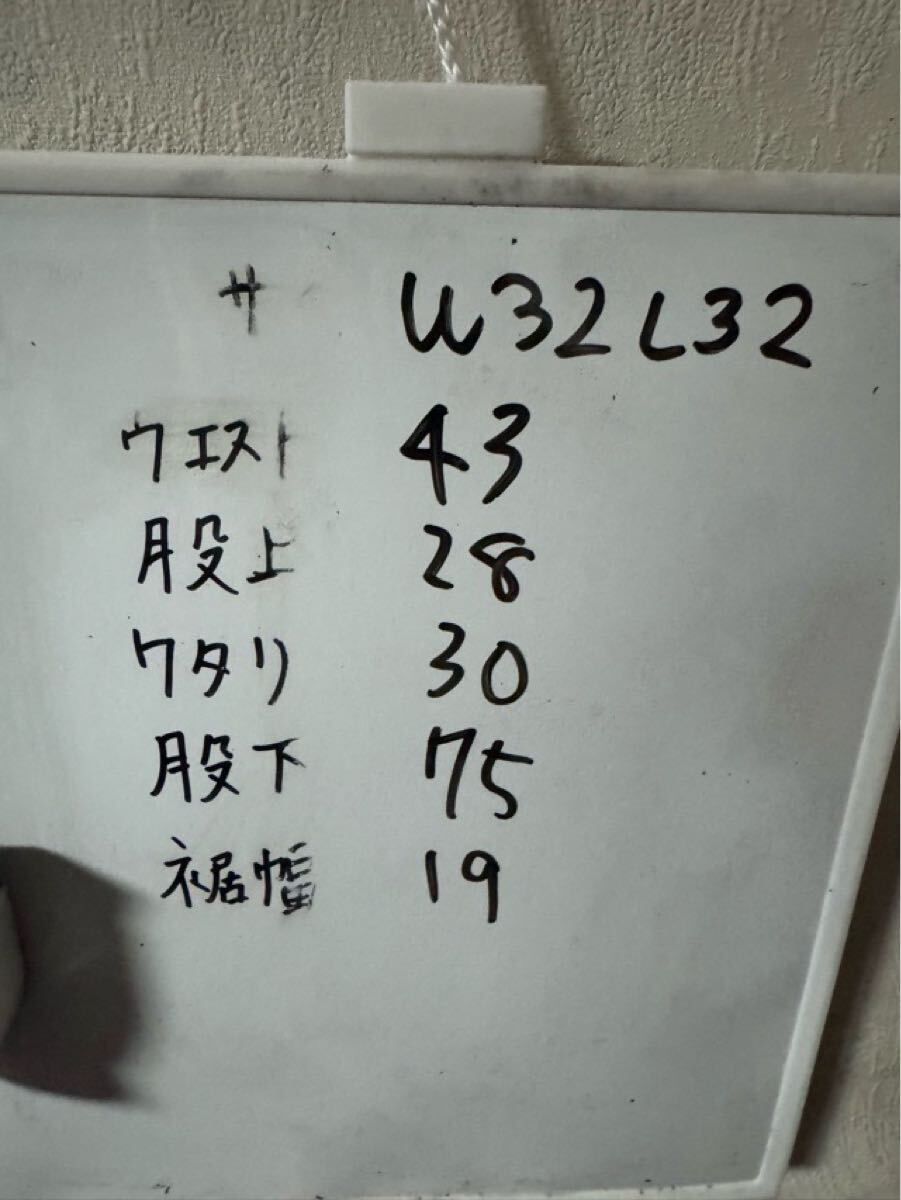 サ W32L32
ウエスト 43
股上 28
ワタリ 30
股下 75
裾幅 19